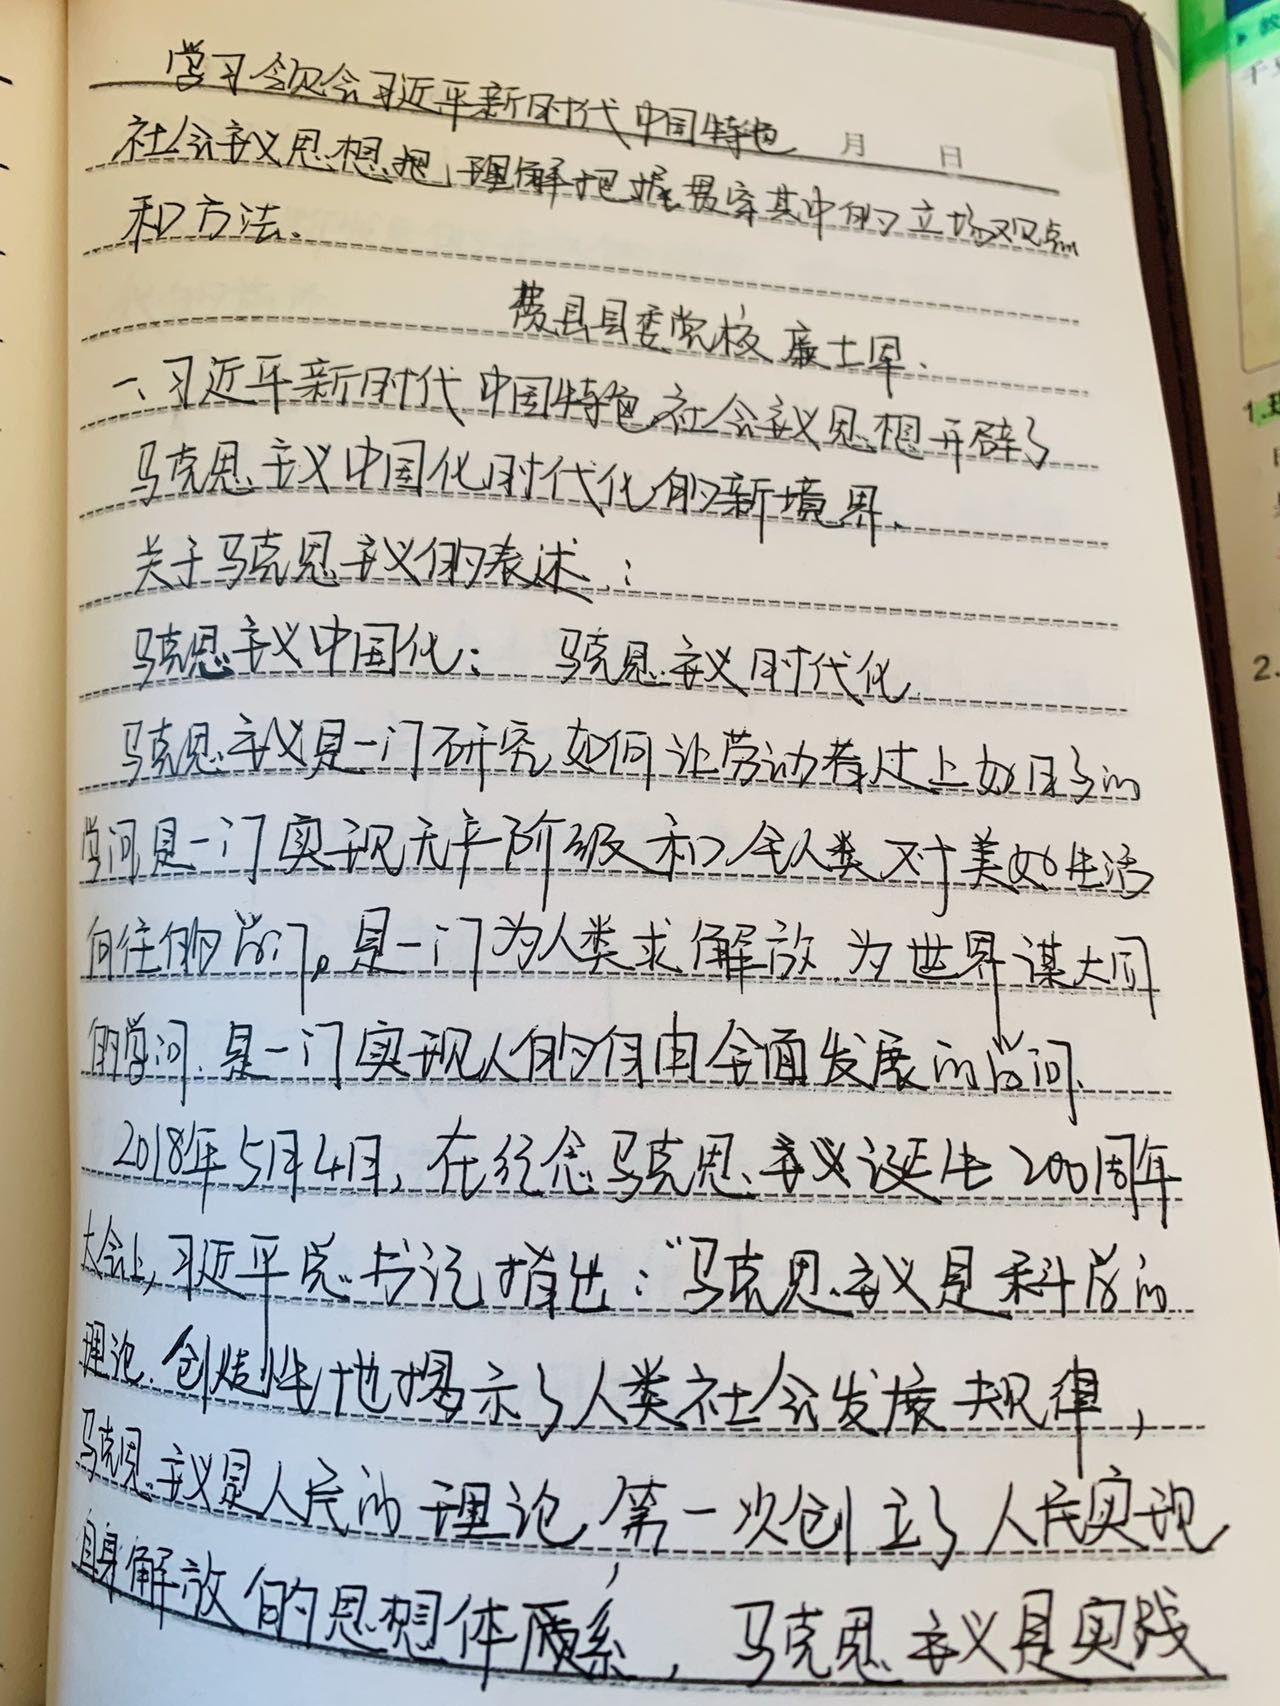 学习领会习近平新时代中国特色
月 日
社会主义思想把,理解把握贯穿其中的立场观点
和方法.
费县县委党校 康士军.
一、习近平新时代中国特色社会主义思想开辟了
马克思主义中国化时代化的新境界.
关于马克思主义的表述:
马克思主义中国化: 马克思主义时代化.
马克思主义是一门研究如何让劳动者过上好日子的
学问,是一门实现无产阶级和全人类对美好生活
向往的学问。是一门为人类求解放 为世界谋大同
的学问.是一门实现人的自由全面发展的学问.
2018年5月4日,在纪念马克思主义诞生200周年
大会上,习近平总书记指出:“马克思主义是科学的
理论.创造性地揭示了人类社会发展规律,
马克思主义是人民的理论,第一次创立了人民实现
自身解放的思想体系,马克思主义是实践
1.
2.